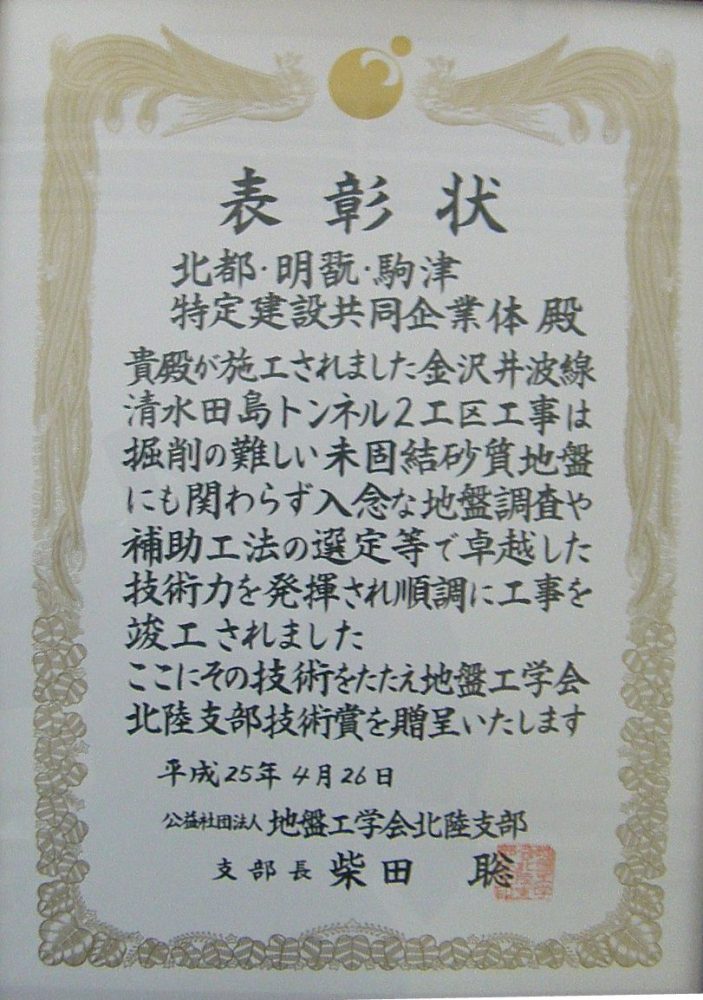 表彰状
北都・明翫・駒津
特定建設共同企業体 殿
貴殿が施工されました金沢井波線
清水田島トンネル2工区工事は
掘削の難しい未固結砂質地盤
にも関わらず入念な地盤調査や
補助工法の選定等で卓越した
技術力を発揮され順調に工事を
竣工されました
ここにその技術をたたえ地盤工学会
北陸支部技術賞を贈呈いたします
平成25年4月26日
公益社団法人 地盤工学会北陸支部
支部長 柴田 聡